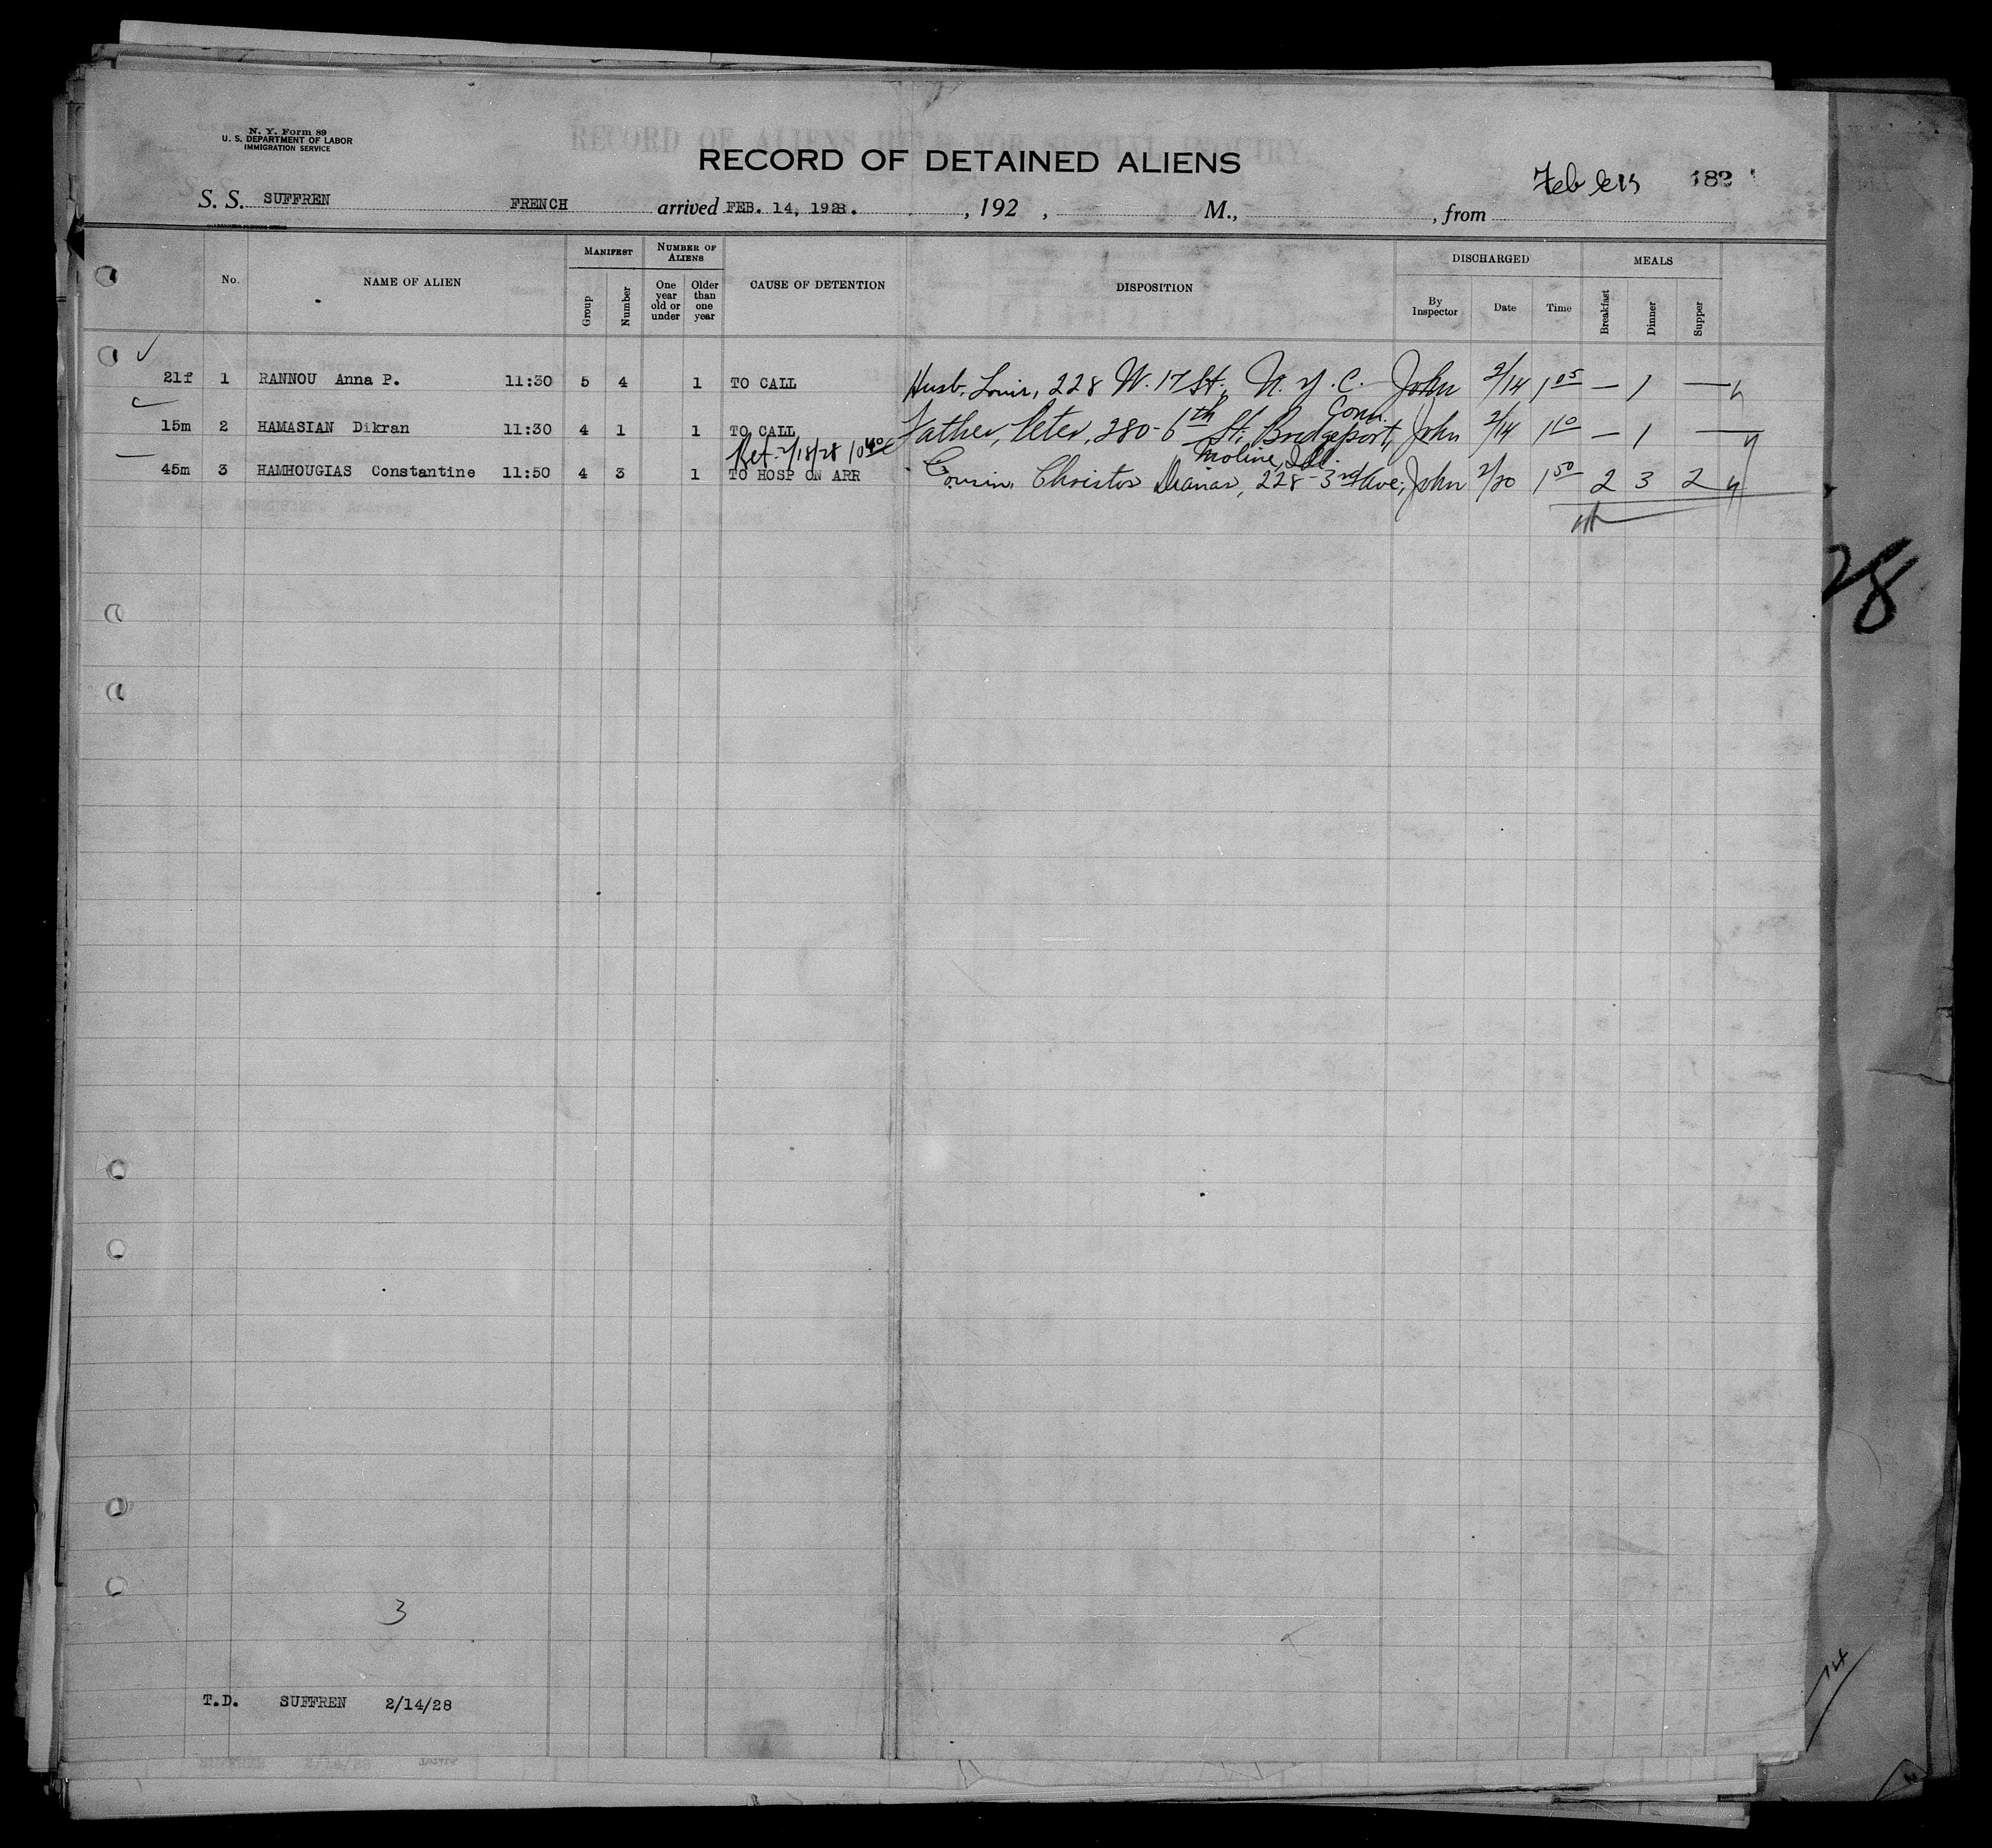 N. Y. Form 89
U. S. DEPARTMENT OF LABOR
IMMIGRATION SERVICE
RECORD OF DETAINED ALIENS
183
S. S. SUFFREN FRENCH arrived FEB. 14, 1928. , 192 , M., , from
No. NAME OF ALIEN MANIFEST Group Number NUMBER OF ALIENS One year old or under Older than one year CAUSE OF DETENTION DISPOSITION DISCHARGED By Inspector Date Time MEALS Breakfast Dinner Supper
21f 1 RANNOU Anna P. 11:30 5 4 1 TO CALL Husb, Louis, 228 W. 17 St., N. Y. C. John 2/14 1 05 — 1 —
15m 2 HAMASIAN Dikran 11:30 4 1 1 TO CALL Father, Peter, 280-6th St., Bridgeport, Conn. John 2/14 1 10 — 1 —
Ret. 2/18/28 10 40
45m 3 HAMHOUGIAS Constantine 11:50 4 3 1 TO HOSP ON ARR Cousin, Christos Dianas, 228-3rd Ave, Moline, Ill. John 2/20 1 50 2 3 2
28
3
T.D. SUFFREN 2/14/28
14